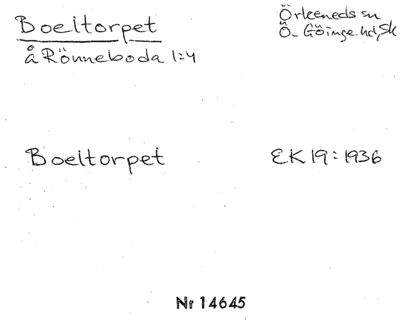 Boeltorpet
Örkeneds sn
å Rönneboda 1:4
Ö. Göinge hd, Sk
Boeltorpet
EK 19:1936
Nr 14645